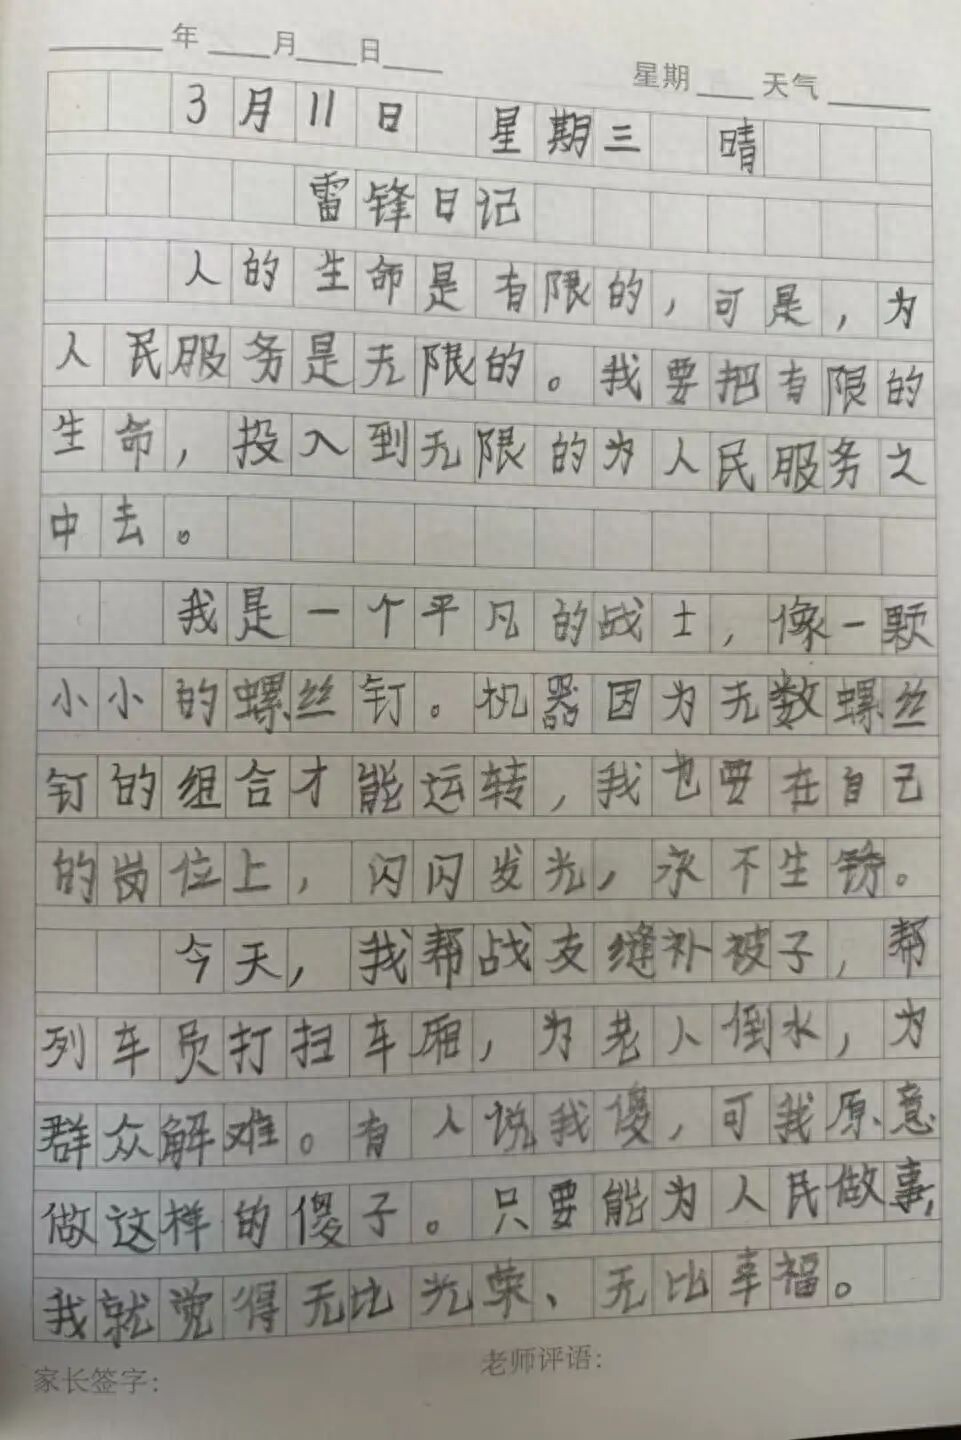 年 月 日
星期 天气
3月11日 星期三 晴
雷锋日记
人的生命是有限的，可是，为
人民服务是无限的。我要把有限的
生命，投入到无限的为人民服务之
中去。
我是一个平凡的战士，像一颗
小小的螺丝钉。机器因为无数螺丝
钉的组合才能运转，我也要在自己
的岗位上，闪闪发光，永不生锈。
今天，我帮战友缝补被子，帮
列车员打扫车厢，为老人倒水，为
群众解难。有人说我傻，可我原意
做这样的傻子。只要能为人民做事，
我就觉得无比光荣、无比幸福。
家长签字：
老师评语：